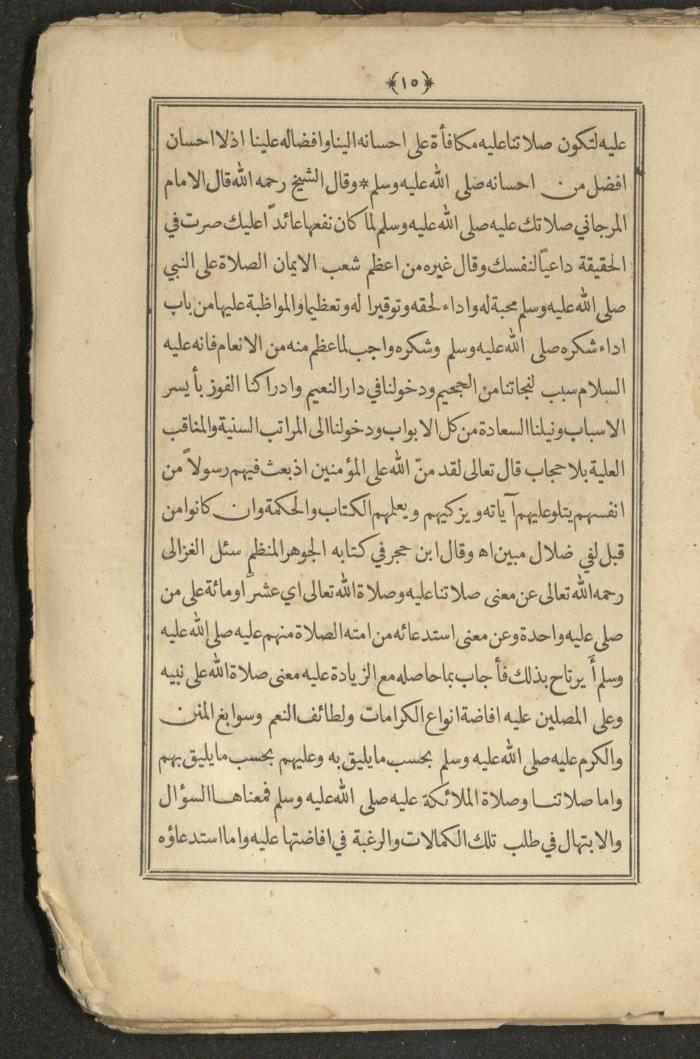 ﴿١٥﴾
عليه لتكون صلاتنا عليه مكافأة على احسانه الينا وافضاله علينا اذلا احسان
افضل من احسانه صلى الله عليه وسلم * وقال الشيخ رحمه الله قال الامام
المرجاني صلاتك عليه صلى الله عليه وسلم لما كان نفعها عائداً عليك صرت في
الحقيقة داعياً لنفسك وقال غيره من اعظم شعب الايمان الصلاة على النبي
صلى الله عليه وسلم محبة له واداء لحقه وتوقيرا له وتعظيما والمواظبة عليها من باب
اداء شكره صلى الله عليه وسلم وشكره واجب لما عظم منه من الانعام فانه عليه
السلام سبب لنجاتنا من الجحيم ودخولنا في دار النعيم وادراكنا الفوز بأيسر
الاسباب ونيلنا السعادة من كل الابواب ودخولنا الى المراتب السنية والمناقب
العلية بلا حجاب قال تعالى لقد منّ الله على المؤمنين اذ بعث فيهم رسولاً من
انفسهم يتلو عليهم آياته ويزكيهم ويعلمهم الكتاب والحكمة وان كانوا من
قبل لفي ضلال مبين اه وقال ابن حجر في كتابه الجوهر المنظم سئل الغزالى
رحمه الله تعالى عن معنى صلاتنا عليه وصلاة الله تعالى اي عشراً او مائة على من
صلى عليه واحدة وعن معنى استدعائه من امته الصلاة منهم عليه صلى الله عليه
وسلم أَ يرتاح بذلك فأجاب بما حاصله مع الزيادة عليه معنى صلاة الله على نبيه
وعلى المصلين عليه افاضة انواع الكرامات ولطائف النعم وسوابغ المنن
والكرم عليه صلى الله عليه وسلم بحسب ما يليق به وعليهم بحسب ما يليق بهم
واما صلاتنا وصلاة الملائكة عليه صلى الله عليه وسلم فمعناها السؤال
والابتهال في طلب تلك الكمالات والرغبة في افاضتها عليه واما استدعاؤه